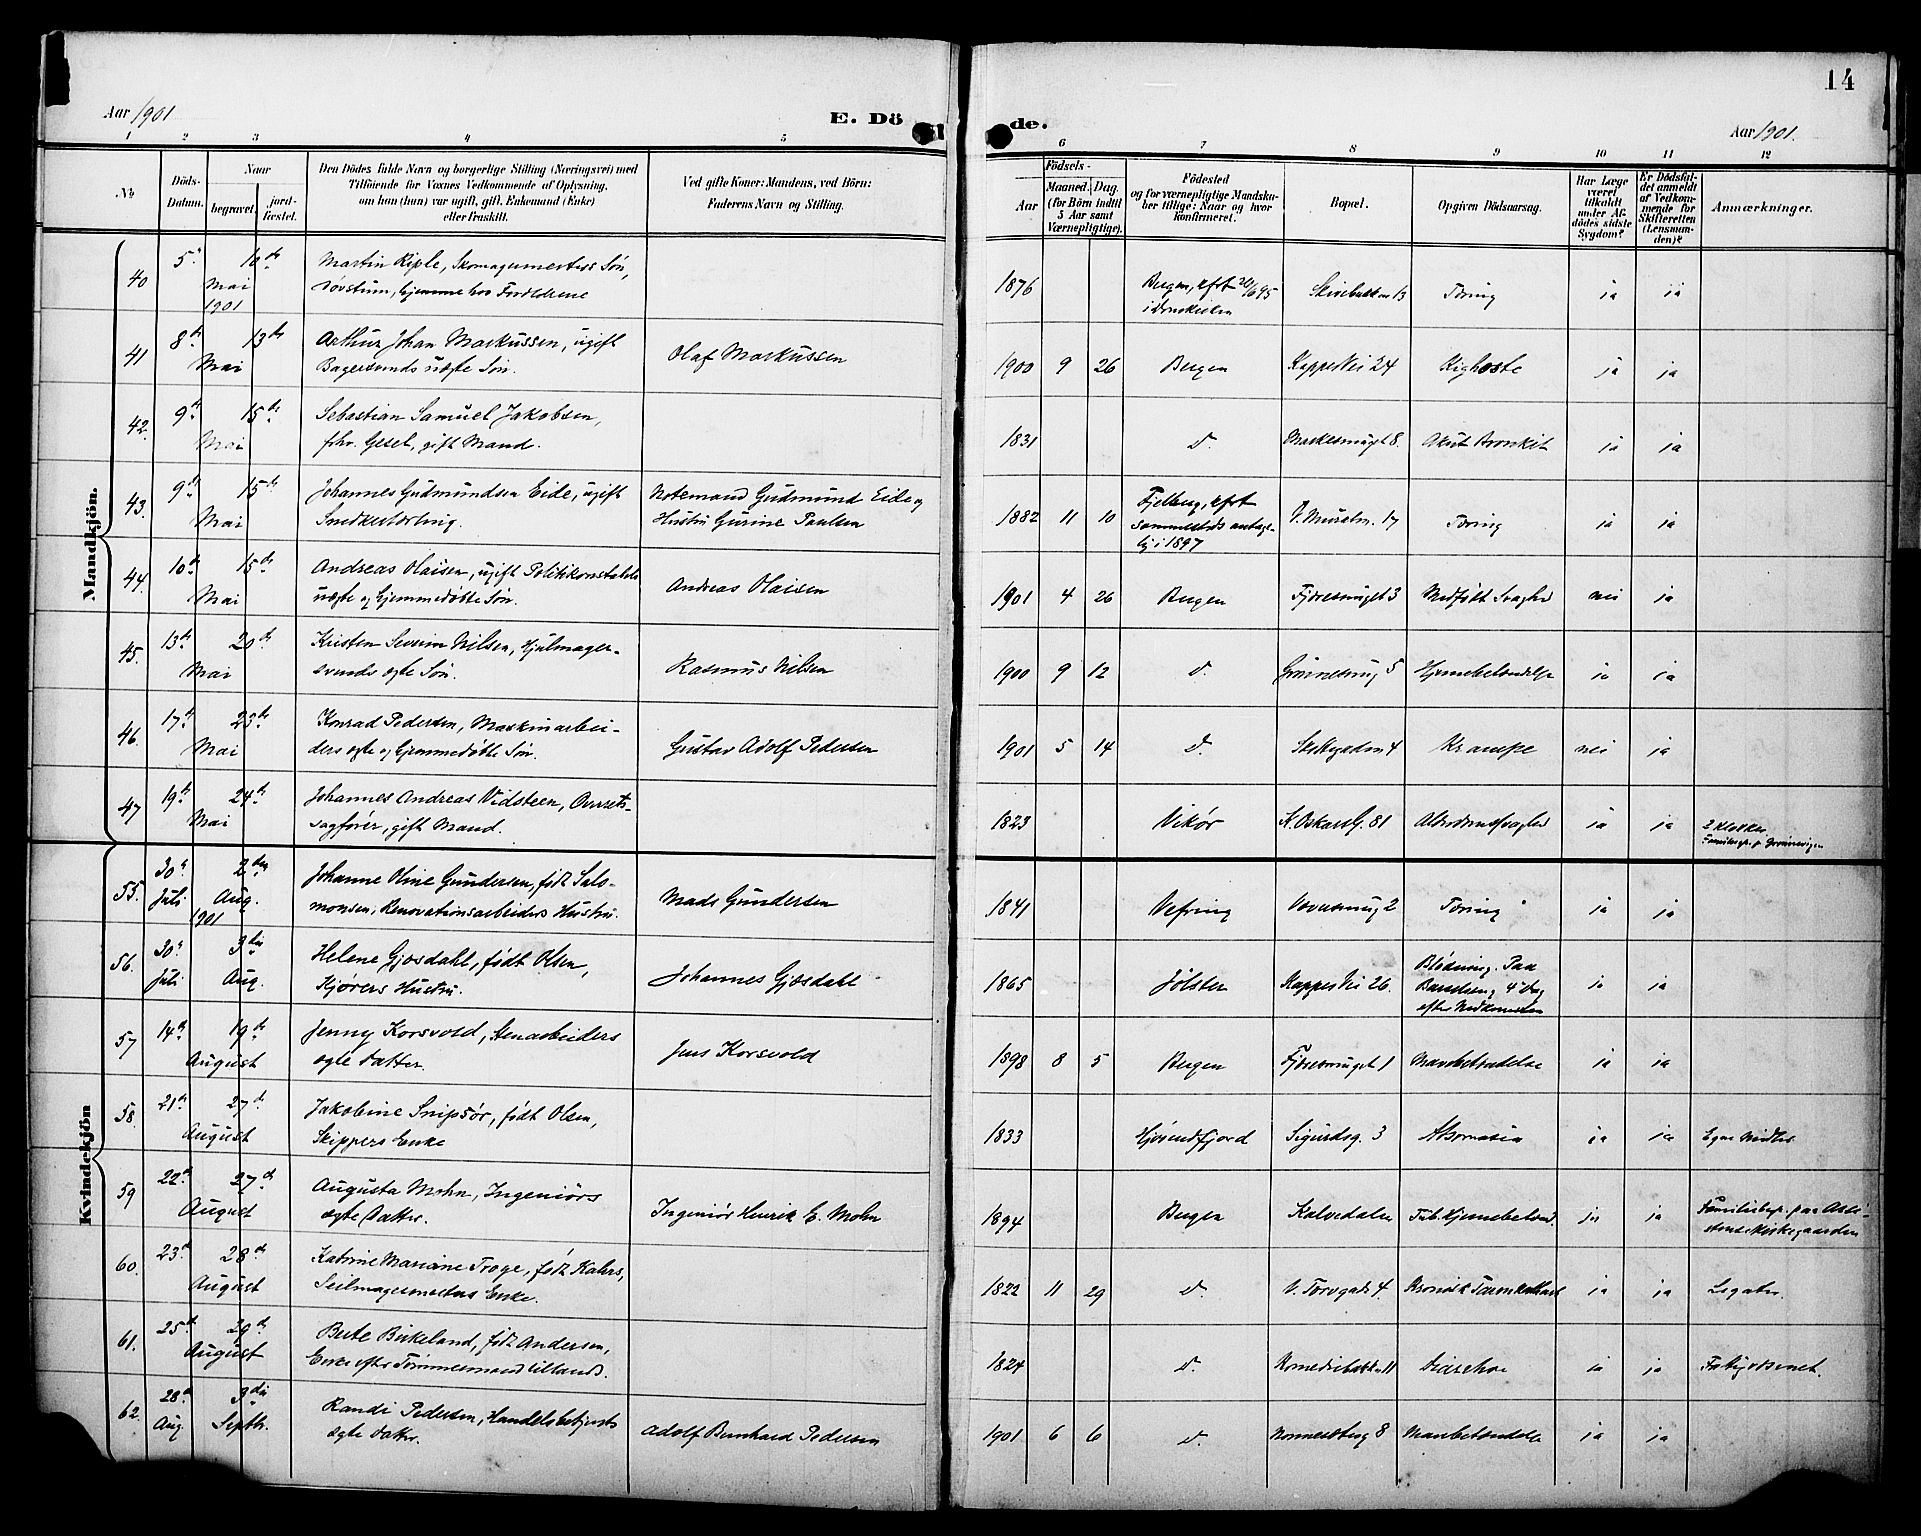 14
Aar 1901
E. Dö
de.
Aar 1901.
1 2 3 4 5 6 7 8 9 10 11 12
No
Döds-
Datum.
Naar
begravet.
jord-
fæstet.
Den Dödes fulde Navn og borgerlige Stilling (Næringsvei) med
Tilföiende for Voxnes Vedkommende af Oplysning,
om han (hun) var ugift, gift, Enkemand (Enke)
eller fraskilt.
Ved gifte Koner: Mandens, ved Börn:
Faderens Navn og Stilling.
Födsels-
Aar
Maaned.
Dag.
(for Börn indtil
5 Aar samt
Værnepligtige).
Födested
og for værnepligtige Mandska-
ber tillige: Naar og hvor
konfirmeret.
Bopæl.
Opgiven Dödsaarsag.
Har Læge
været
tilkaldt
under Af-
dödes sidste
Sygdom?
Er Dödsfal-
det anmeldt
af Vedkom-
mende for
Skifteretten
(Lensman-
den)?
Anmærkninger.
Mandkjön.
40 5 10de Mai 1901
Martin Riple, Skomagermesters Søn,
døvstum, hjemme hos Forældrene
1876 Bergen, kfrt 20/6 95
i Domkirken
13 Tæring ja ja
41 8de 13de Mai
Arthur Johan Markussen, ugift
Bagersvends uægte Søn.
Olaf Markussen
1900 9 26 Bergen Kappevei 24 Kighoste ja ja
42. 9de 15de Mai
Sebastian Samuel Jakobsen,
fhv. Gesel, gift Mand.
1831 d. 8. Akut Bronkit ja ja
43. 9de 15de Mai
Johannes Gudmundsen Eide, ugift
Snedkerlærling.
Notemand Gudmund Eide og
Hustru Gurine Paulsen
1882 11 10 Fjelberg, kfrt
sammesteds antage-
lig i 1897
17 Tæring ja ja
44. 10de 15de Mai
Andreas Olaisen, ugift Politikonstabels
uægte og hjemmedøbte Søn.
Andreas Olaisen
1901 4 26 Bergen Fjøresmuget 3 Medfødt Svaghed nei ja
45. 13de 20de Mai
Kristen Severin Nilsen, Hjulmager-
svends ægte Søn.
Rasmus Nilsen
1900 9 12 d. 5 Hjernebetændelse ja ja
46. 17de 23de Mai
Konrad Pedersen, Maskinarbei-
ders ægte og hjemmedøbte Søn.
Gustav Adolf Pedersen
1901 5 14 d. 4 Krampe nei ja
47 19de 24de Mai
Johannes Andreas Vidsteen, Overrets-
sagfører, gift Mand.
1823 Vikør K. Oskars G. 81 Alderdomssvaghed ja ja
2 Klokker.
Kvindekjön
55. 30 Juli 2den Aug. 1901
Johanne Oline Gundersen, født Salo-
monsen, Renovationsarbeiders Hustru.
Mads Gundersen
1841 Vefring 2 Tæring ja ja
56. 30 Juli 3die Aug.
Helene Gjæsdahl, født Olsen,
Kjørers Hustru.
Johannes Gjæsdahl
1865 Jølster Kappevei 26.
Blødning. Paa
Barselseng 4 Dag
efter Nedkomsten
ja ja
57 14de 19de August
Jenny Korsvold, Stenarbeiders
ægte Datter.
Jens Korsvold
1898 8 5 Bergen Fjøresmuget 1 Mavebetændelse ja ja
58. 21de 27de August
Jakobine Snipsør, født Olsen,
Skippers Enke
1833 Hjørundfjord Sigurdsg. 3 ja ja Egne Midler
59 22de 27de August
Augusta Mohn, Ingeniørs
ægte Datter.
Ingeniør Henrik E. Mohn
1894 Bergen Kalvedalen Tub. Hjernebetænd. ja ja
Familiebegr. paa Assi-
stentskirkegaarden
60. 23de 28de August
Katrine Mariane Troye, født Kahrs,
Seilmagermesters Enke.
1822 11 29 d. V. Torvgade 4. Kronisk Tarmkatarrh ja ja Legater.
61. 25de 29de August
Berte Birkeland, født Andersen,
Enke efter Tømmermand
1824 d. 11 Diarrhoe ja ja Fattigvæsenet.
62. 28de Aug. 3die Septbr.
Randi Pedersen, Handelsbetjents
ægte Datter.
Adolf Bernhard Pedersen
1901 6 6 d. 8 Mavebetændelse ja ja